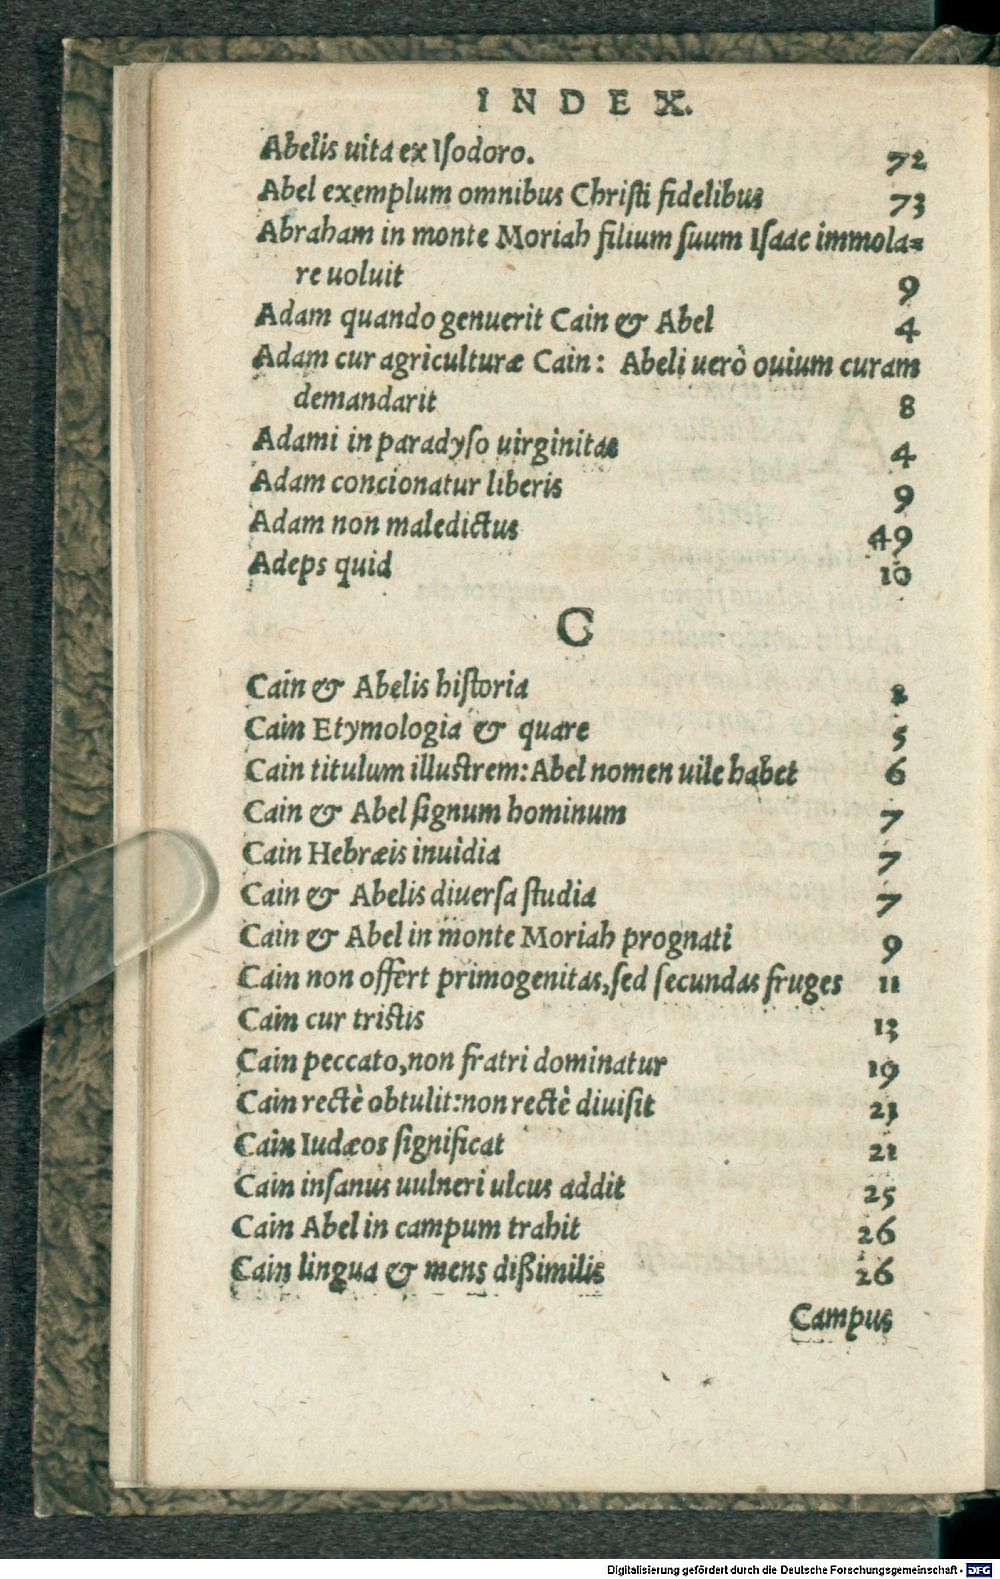 INDEX.
Abelis uita ex Iſodoro. 72
Abel exemplum omnibus Chriſti fidelibus 73
Abraham in monte Moriah filium ſuum Iſaac immola=
re uoluit 9
Adam quando genuerit Cain & Abel 4
Adam cur agriculturæ Cain: Abeli uerò ouium curam
demandarit 8
Adami in paradyſo uirginitas 4
Adam concionatur liberis 9
Adam non maledictus 49
Adeps quid 10
C
Cain & Abelis hiſtoria
Cain Etymologia & quare 5
Cain titulum illuſtrem: Abel nomen uile habet 6
Cain & Abel ſignum hominum 7
Cain Hebræis inuidia 7
Cain & Abelis diuerſa ſtudia 7
Cain & Abel in monte Moriah prognati 9
Cain non offert primogenitas, ſed ſecundas fruges 11
Cain cur triſtis 13
Cain peccato, non fratri dominatur 19
Cain rectè obtulit: non rectè diuiſit 23
Cain Iudæos ſignificat 21
Cain inſanus uulneri ulcus addit 25
Cain Abel in campum trahit 26
Cain lingua & mens dißimilis 26
Campus
Digitalisierung gefördert durch die Deutsche Forschungsgemeinschaft - DFG